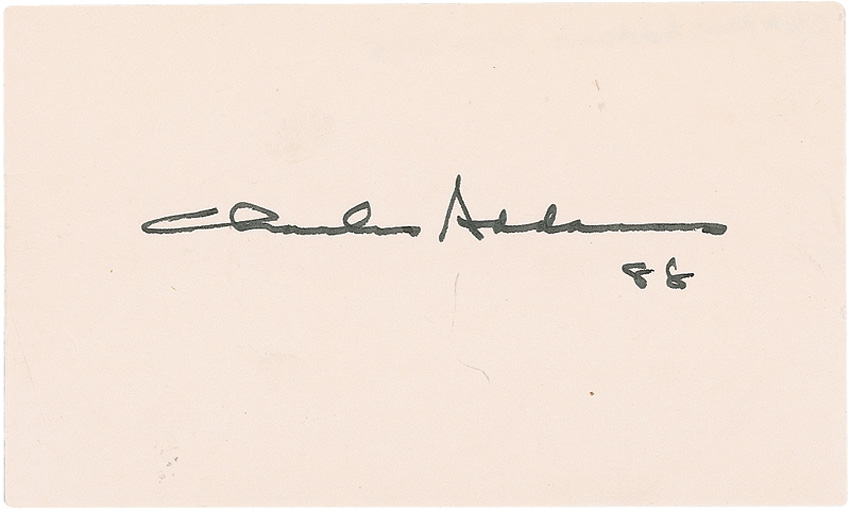 Charles Addams
88